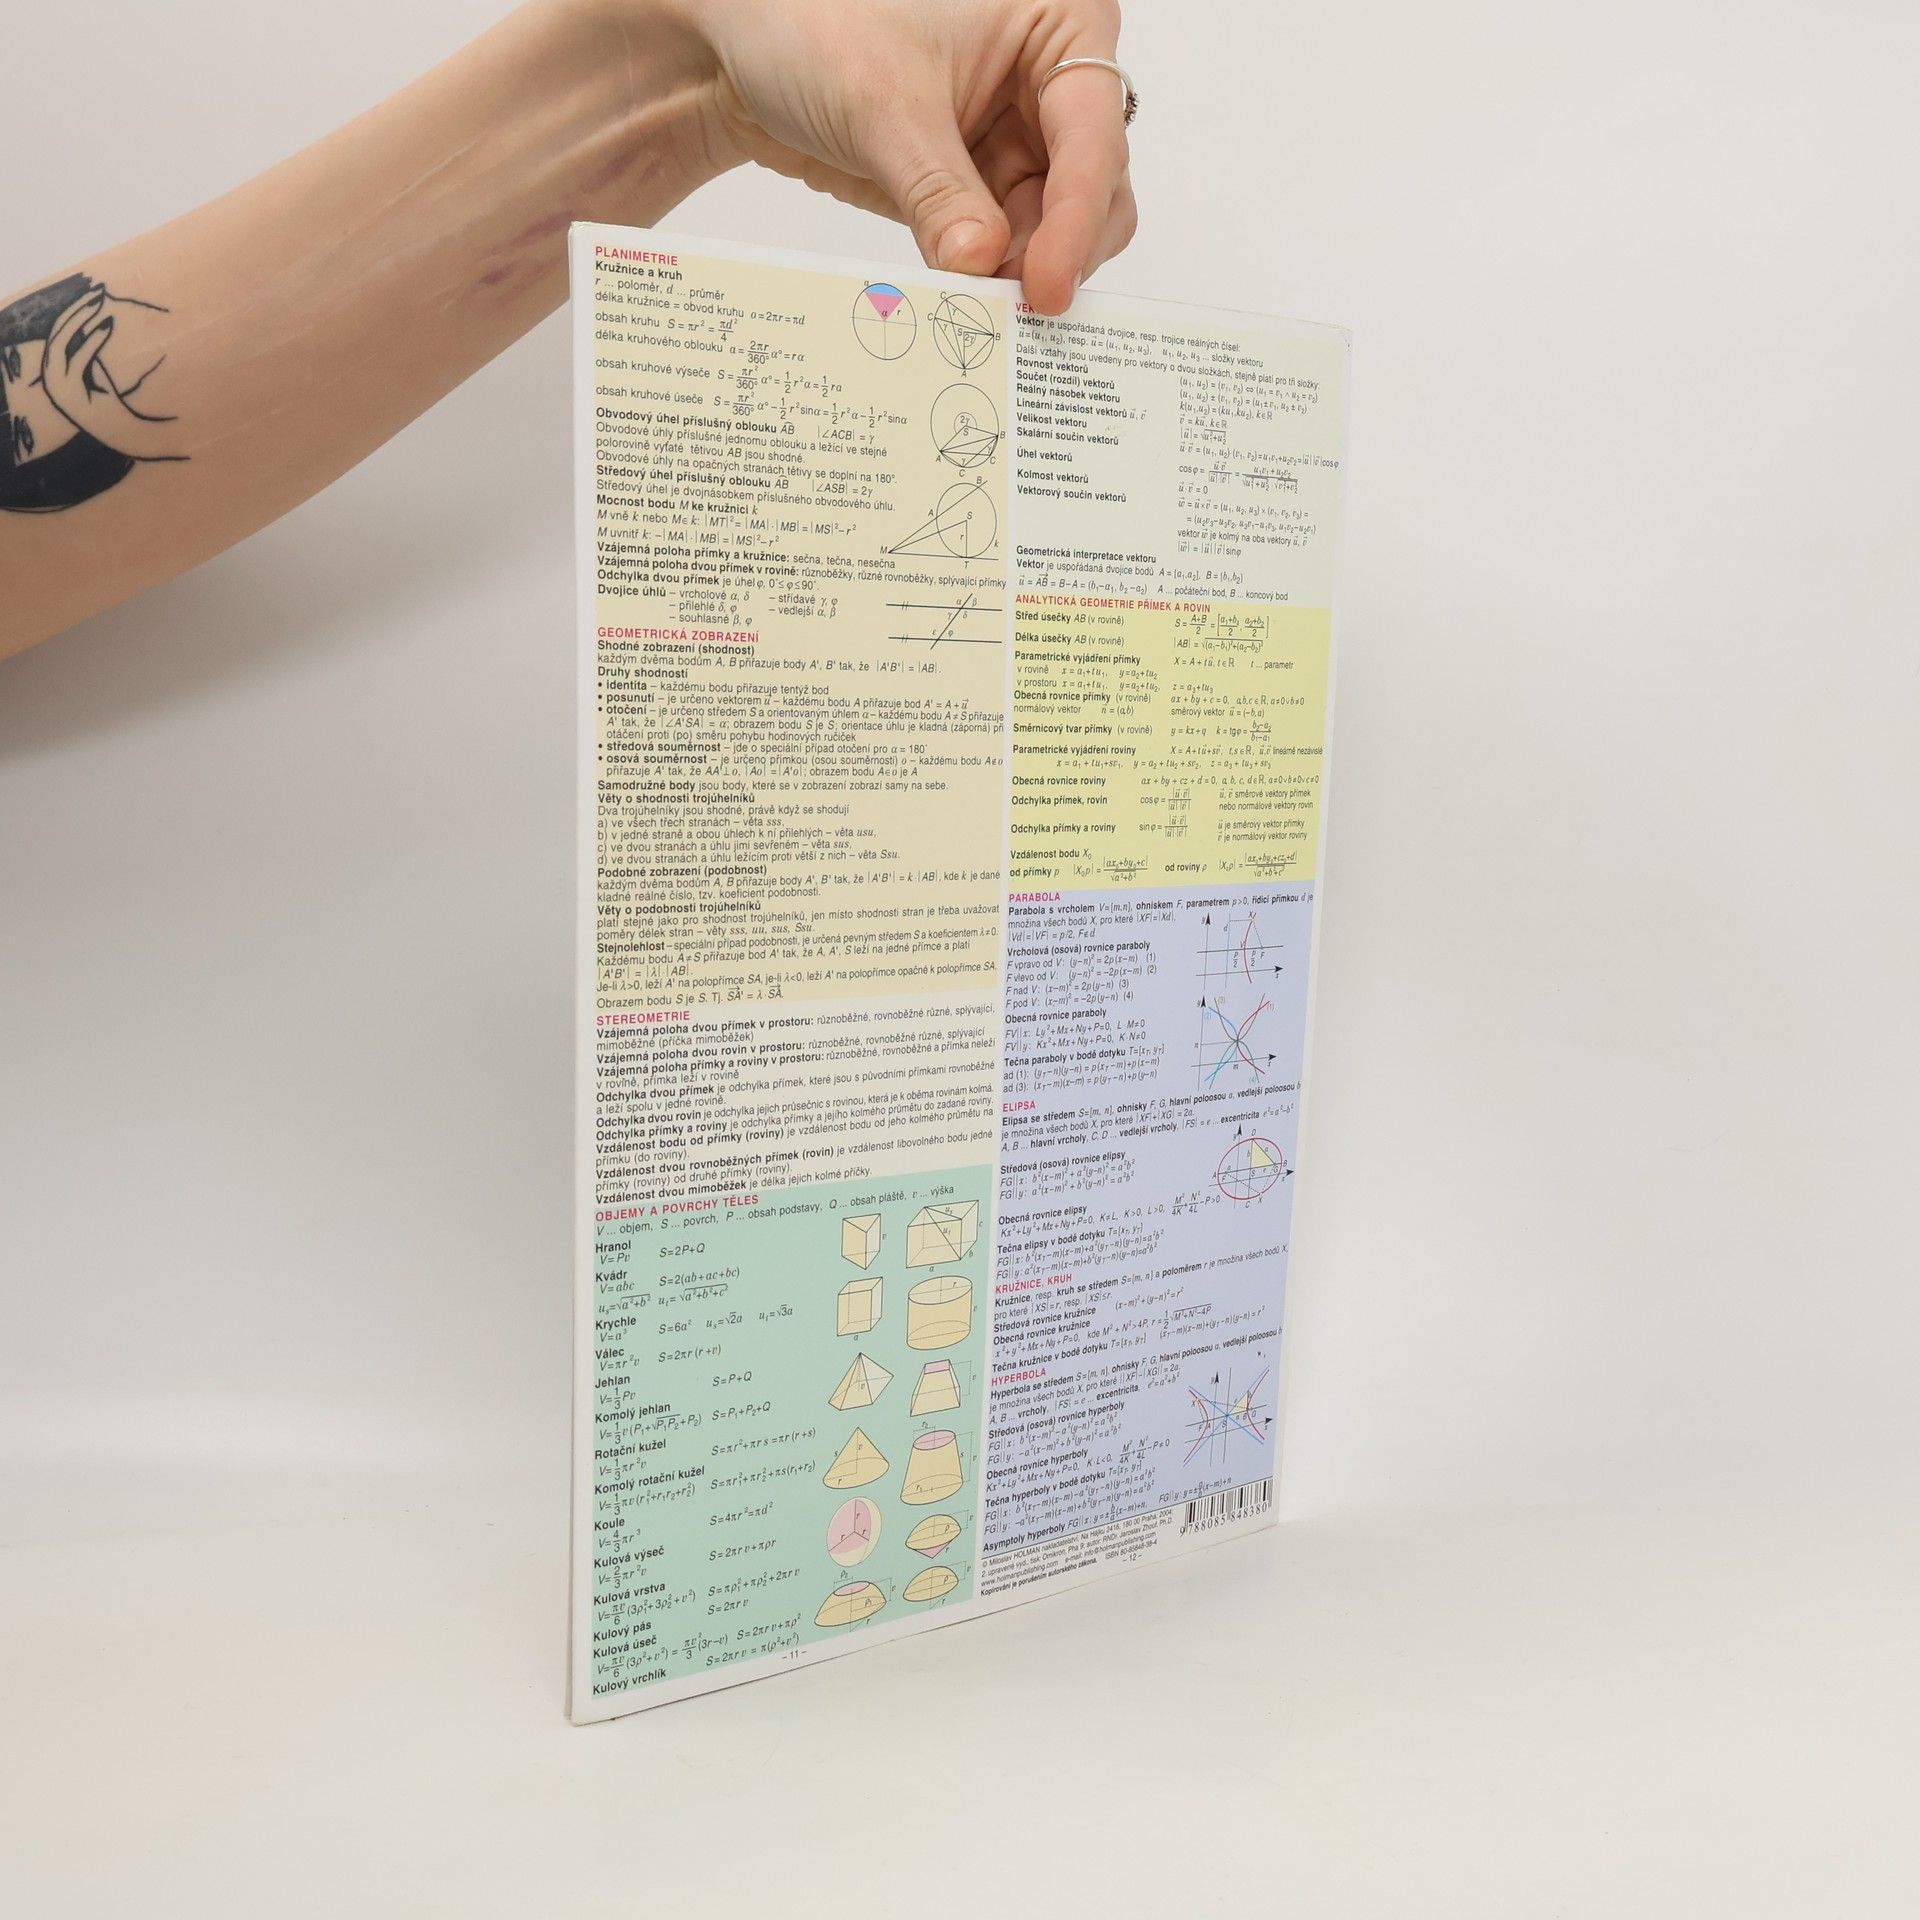 PLANIMETRIE
Kružnice a kruh
r ... poloměr, d ... průměr
délka kružnice = obvod kruhu o=2πr=πd
obsah kruhu S = πr² = πd²/4
délka kruhového oblouku a = 2πr/360° α° = rα
obsah kruhové výseče S = πr²/360° α° = 1/2 r²α = 1/2 ra
obsah kruhové úseče S = πr²/360° α° − 1/2 r² sinα = 1/2 r²α − 1/2 r² sinα
Obvodový úhel příslušný oblouku AB |∠ACB| = γ
Obvodové úhly příslušné jednomu oblouku a ležící ve stejné
polorovině vyťaté tětivou AB jsou shodné.
Obvodové úhly na opačných stranách tětivy se doplní na 180°.
Středový úhel příslušný oblouku AB |∠ASB| = 2γ
Středový úhel je dvojnásobkem příslušného obvodového úhlu.
Mocnost bodu M ke kružnici k
M vně k nebo M∈k: |MT|² = |MA|·|MB| = |MS|²−r²
M uvnitř k: −|MA|·|MB| = |MS|²−r²
Vzájemná poloha přímky a kružnice: sečna, tečna, nesečna
Vzájemná poloha dvou přímek v rovině: různoběžky, různé rovnoběžky, splývající přímky
Odchylka dvou přímek je úhel φ, 0°≤φ≤90°.
Dvojice úhlů – vrcholové α, δ – střídavé γ, φ
– přilehlé δ, φ – vedlejší α, β
– souhlasné β, φ
GEOMETRICKÁ ZOBRAZENÍ
Shodné zobrazení (shodnost)
každým dvěma bodům A, B přiřazuje body A', B' tak, že |A'B'| = |AB|.
Druhy shodností
• identita – každému bodu přiřazuje tentýž bod
• posunutí – je určeno vektorem u – každému bodu A přiřazuje bod A' = A + u
• otočení – je určeno středem S a orientovaným úhlem α – každému bodu A≠S přiřazuje
A' tak, že |∠A'SA| = α; obrazem bodu S je S; orientace úhlu je kladná (záporná) při
otáčení proti (po) směru pohybu hodinových ručiček
• středová souměrnost – jde o speciální případ otočení pro α = 180°
• osová souměrnost – je určeno přímkou (osou souměrnosti) o – každému bodu A∉o
přiřazuje A' tak, že AA'⊥o, |Ao| = |A'o|; obrazem bodu A∈o je A
Samodružné body jsou body, které se v zobrazení zobrazí samy na sebe.
Věty o shodnosti trojúhelníků
Dva trojúhelníky jsou shodné, právě když se shodují
a) ve všech třech stranách – věta sss,
b) v jedné straně a obou úhlech k ní přilehlých – věta usu,
c) ve dvou stranách a úhlu jimi sevřeném – věta sus,
d) ve dvou stranách a úhlu ležícím proti větší z nich – věta Ssu.
Podobné zobrazení (podobnost)
každým dvěma bodům A, B přiřazuje body A', B' tak, že |A'B'| = k·|AB|, kde k je dané
kladné reálné číslo, tzv. koeficient podobnosti.
Věty o podobnosti trojúhelníků
platí stejné jako pro shodnost trojúhelníků, jen místo shodnosti stran je třeba uvažovat
poměry délek stran – věty sss, uu, sus, Ssu.
Stejnolehlost – speciální případ podobnosti, je určená pevným středem S a koeficientem λ≠0.
Každému bodu A≠S přiřazuje bod A' tak, že A, A', S leží na jedné přímce a platí
|A'B'| = |λ|·|AB|.
Je-li λ>0, leží A' na polopřímce SA, je-li λ<0, leží A' na polopřímce opačné k polopřímce SA.
Obrazem bodu S je S. Tj. SA' = λ·SA.
STEREOMETRIE
Vzájemná poloha dvou přímek v prostoru: různoběžné, rovnoběžné různé, splývající,
mimoběžné (příčka mimoběžek)
Vzájemná poloha dvou rovin v prostoru: různoběžné, rovnoběžné různé, splývající
Vzájemná poloha přímky a roviny v prostoru: různoběžné, rovnoběžné a přímka neleží
v rovině, přímka leží v rovině
Odchylka dvou přímek je odchylka přímek, které jsou s původními přímkami rovnoběžné
a leží spolu v jedné rovině.
Odchylka dvou rovin je odchylka jejich průsečnic s rovinou, která je k oběma rovinám kolmá.
Odchylka přímky a roviny je odchylka přímky a jejího kolmého průmětu do zadané roviny.
Vzdálenost bodu od přímky (roviny) je vzdálenost bodu od jeho kolmého průmětu na
přímku (do roviny).
Vzdálenost dvou rovnoběžných přímek (rovin) je vzdálenost libovolného bodu jedné
přímky (roviny) od druhé přímky (roviny).
Vzdálenost dvou mimoběžek je délka jejich kolmé příčky.
OBJEMY A POVRCHY TĚLES
V ... objem, S ... povrch, P ... obsah podstavy, Q ... obsah pláště, v ... výška
Hranol
V=Pv S=2P+Q
Kvádr
V=abc S=2(ab+ac+bc)
uₛ=√a²+b² uₜ=√a²+b²+c²
Krychle
V=a³ S=6a² uₛ=√2a uₜ=√3a
Válec
V=πr²v S=2πr(r+v)
Jehlan
V=1/3 Pv S=P+Q
Komolý jehlan
V=1/3 v(P₁+√P₁P₂+P₂) S=P₁+P₂+Q
Rotační kužel
V=1/3 πr²v S=πr²+πrs=πr(r+s)
Komolý rotační kužel
V=1/3 πv(r₁²+r₁r₂+r₂²) S=πr₁²+πr₂²+πs(r₁+r₂)
Koule
V=4/3 πr³ S=4πr²=πd²
Kulová výseč
V=2/3 πr²v S=2πrv+πρr
Kulová vrstva
V=πv/6 (3ρ₁²+3ρ₂²+v²) S=πρ₁²+πρ₂²+2πrv
Kulový pás
S=2πrv
Kulová úseč
V=πv/6 (3ρ²+v²) = πv²/3 (3r−v) S=2πrv+πρ²
Kulový vrchlík
S=2πrv = π(ρ²+v²)
– 11 –
Vektor je uspořádaná dvojice, resp. trojice reálných čísel:
u=(u₁, u₂), resp. u = (u₁, u₂, u₃), u₁, u₂, u₃ ... složky vektoru
Další vztahy jsou uvedeny pro vektory o dvou složkách, stejně platí pro tři složky:
Rovnost vektorů (u₁, u₂) = (v₁, v₂) ⇔ (u₁ = v₁ ∧ u₂ = v₂)
Součet (rozdíl) vektorů (u₁, u₂) ± (v₁, v₂) = (u₁±v₁, u₂ ± v₂)
Reálný násobek vektoru k(u₁,u₂) = (ku₁,ku₂), k∈R
Lineární závislost vektorů u, v v = ku, k∈R
Velikost vektoru |u| = √u₁²+u₂²
Skalární součin vektorů u·v = (u₁, u₂)·(v₁, v₂)=u₁v₁+u₂v₂=|u||v|cosφ
Úhel vektorů cosφ = u·v/|u|·|v| = u₁v₁+u₂v₂/√u₁²+u₂²·√v₁²+v₂²
Kolmost vektorů u·v = 0
Vektorový součin vektorů w = u×v = (u₁, u₂, u₃) × (v₁, v₂, v₃) =
= (u₂v₃−u₃v₂, u₃v₁−u₁v₃, u₁v₂−u₂v₁)
vektor w je kolmý na oba vektory u, v
|w| = |u||v|sinφ
Geometrická interpretace vektoru
Vektor je uspořádaná dvojice bodů A = [a₁,a₂], B = [b₁,b₂]
u = AB = B−A = (b₁−a₁, b₂−a₂) A ... počáteční bod, B ... koncový bod
ANALYTICKÁ GEOMETRIE PŘÍMEK A ROVIN
Střed úsečky AB (v rovině) S = A+B/2 = [a₁+b₁/2, a₂+b₂/2]
Délka úsečky AB (v rovině) |AB| = √(a₁−b₁)²+(a₂−b₂)²
Parametrické vyjádření přímky X = A + tu, t∈R t ... parametr
v rovině x = a₁+tu₁, y=a₂+tu₂
v prostoru x = a₁+tu₁, y=a₂+tu₂, z = a₃+tu₃
Obecná rovnice přímky (v rovině) ax + by + c = 0, a,b,c∈R, a≠0∨b≠0
normálový vektor n = (a,b) směrový vektor u = (−b,a)
Směrnicový tvar přímky (v rovině) y = kx+q k = tgφ = b₂−a₂/b₁−a₁
Parametrické vyjádření roviny X = A+tu+sv, t,s∈R, u,v lineárně nezávislé
x = a₁ + tu₁+sv₁, y = a₂ + tu₂ + sv₂, z = a₃ + tu₃ + sv₃
Obecná rovnice roviny ax + by + cz + d = 0, a, b, c, d∈R, a≠0∨b≠0∨c≠0
Odchylka přímek, rovin cosφ = |u·v|/|u|·|v| u, v směrové vektory přímek
nebo normálové vektory rovin
Odchylka přímky a roviny sinφ = |u·v|/|u|·|v| u je směrový vektor přímky
v je normálový vektor roviny
Vzdálenost bodu X₀
od přímky p |X₀p| = |ax₀+by₀+c|/√a²+b² od roviny ρ |X₀ρ| = |ax₀+by₀+cz₀+d|/√a²+b²+c²
PARABOLA
Parabola s vrcholem V=[m,n], ohniskem F, parametrem p>0, řídicí přímkou d je
množina všech bodů X, pro které |XF|=|Xd|,
|Vd|=|VF| = p/2, F∉d
Vrcholová (osová) rovnice paraboly
F vpravo od V: (y−n)² = 2p(x−m) (1)
F vlevo od V: (y−n)² = −2p(x−m) (2)
F nad V: (x−m)² = 2p(y−n) (3)
F pod V: (x−m)² = −2p(y−n) (4)
Obecná rovnice paraboly
FV||x: Ly²+Mx+Ny+P=0, L·M≠0
FV||y: Kx²+Mx+Ny+P=0, K·N≠0
Tečna paraboly v bodě dotyku T=[x_T, y_T]
ad (1): (y_T−n)(y−n) = p(x_T−m)+p(x−m)
ad (3): (x_T−m)(x−m) = p(y_T−n)+p(y−n)
ELIPSA
Elipsa se středem S=[m, n], ohnisky F, G, hlavní poloosou a, vedlejší poloosou b
je množina všech bodů X, pro které |XF|+|XG| = 2a.
A, B ... hlavní vrcholy, C, D ... vedlejší vrcholy, |FS| = e ... excentricita e²=a²−b²
Středová (osová) rovnice elipsy
FG||x: b²(x−m)² + a²(y−n)² = a²b²
FG||y: a²(x−m)² + b²(y−n)² = a²b²
Obecná rovnice elipsy
Kx²+Ly²+Mx+Ny+P=0, K≠L, K>0, L>0, M²/4K+N²/4L−P>0
Tečna elipsy v bodě dotyku T=[x_T, y_T]
FG||x: b²(x_T−m)(x−m)+a²(y_T−n)(y−n)=a²b²
FG||y: a²(x_T−m)(x−m)+b²(y_T−n)(y−n)=a²b²
KRUŽNICE, KRUH
Kružnice, resp. kruh se středem S=[m, n] a poloměrem r je množina všech bodů X,
pro které |XS|=r, resp. |XS|≤r.
Středová rovnice kružnice (x−m)²+(y−n)²=r²
Obecná rovnice kružnice
x²+y²+Mx+Ny+P=0, kde M²+N²>4P, r=1/2√M²+N²−4P
Tečna kružnice v bodě dotyku T=[x_T, y_T] (x_T−m)(x−m)+(y_T−n)(y−n) = r²
HYPERBOLA
Hyperbola se středem S=[m, n], ohnisky F, G, hlavní poloosou a, vedlejší poloosou b
je množina všech bodů X, pro které ||XF|−|XG|| = 2a.
A, B ... vrcholy, |FS| = e ... excentricita, e²=a²+b²
Středová (osová) rovnice hyperboly
FG||x: b²(x−m)²−a²(y−n)²=a²b²
FG||y: −a²(x−m)²+b²(y−n)²=a²b²
Obecná rovnice hyperboly
Kx²+Ly²+Mx+Ny+P=0, K·L<0, M²/4K+N²/4L−P≠0
Tečna hyperboly v bodě dotyku T=[x_T, y_T]
FG||x: b²(x_T−m)(x−m)−a²(y_T−n)(y−n)=a²b²
FG||y: −a²(x_T−m)(x−m)+b²(y_T−n)(y−n)=a²b²
Asymptoty hyperboly FG||x: y=±b/a(x−m)+n, FG||y: y=±a/b(x−m)+n
© Miloslav HOLMAN nakladatelství, Na Hájku 2416, 180 00 Praha; 2004;
2. upravené vyd.; tisk: Omikron, Pha 9; autor: RNDr. Jaroslav Zhouf, Ph.D.
www.holmanpublishing.com e-mail: info@holmanpublishing.com
Kopírování je porušením autorského zákona. ISBN 80-85848-38-4
9788085848380
– 12 –